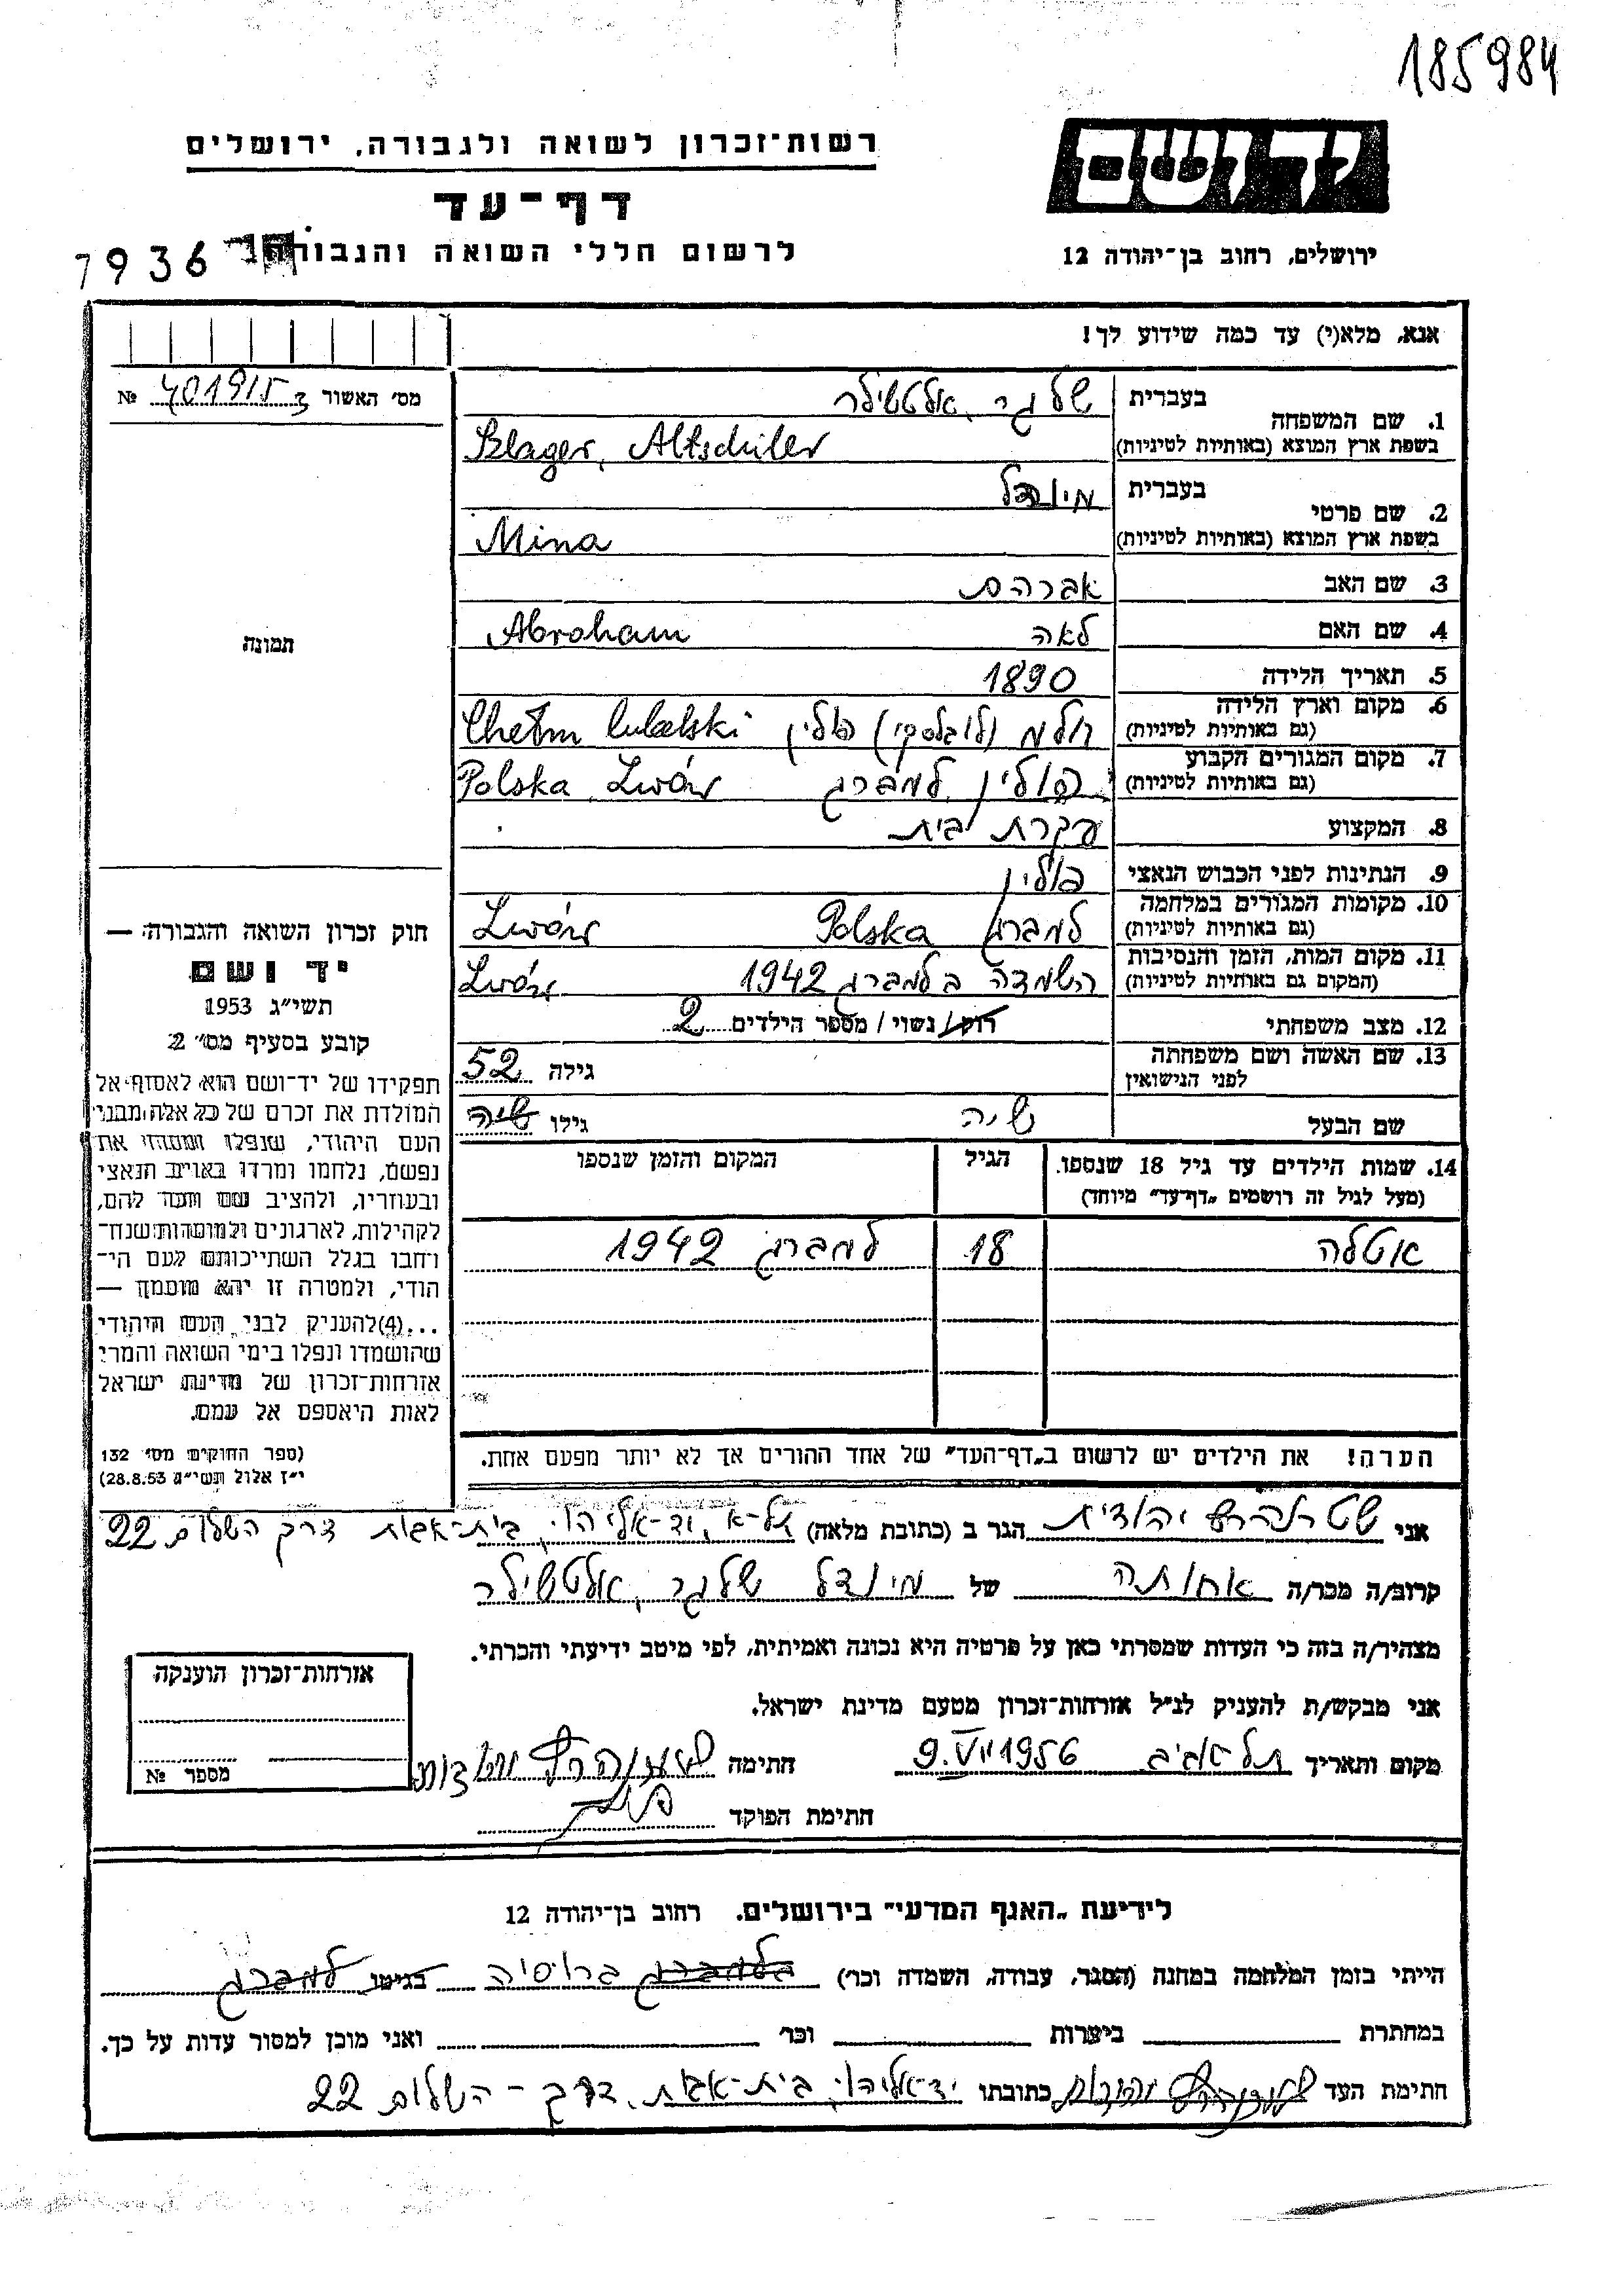 185984
יד ושם
רשות־זכרון לשואה ולגבורה, ירושלים
דף־עד
לרשום חללי השואה והגבורה
7936
ירושלים, רחוב בן־יהודה 12
אנא, מלא(י) עד כמה שידוע לך!
מס׳ האשור
№
1. שם המשפחה
בעברית
שלגר, אלטשילר
בשפת ארץ המוצא (באותיות לטיניות)
Szlager, Altschiler
2. שם פרטי
בעברית
מינדל
בשפת ארץ המוצא (באותיות לטיניות)
Mina
3. שם האב
אברהם
4. שם האם
לאה
Abraham
5. תאריך הלידה
1890
6. מקום וארץ הלידה
(גם באותיות לטיניות)
חלמ (לובלסקי) פולין Chełm lubelski
7. מקום המגורים הקבוע
(גם באותיות לטיניות)
פולין, למברג Polska, Lwów
8. המקצוע
עקרת בית
9. הנתינות לפני הכבוש הנאצי
פולין
10. מקומות המגורים במלחמה
(גם באותיות לטיניות)
למברג Polska Lwów
11. מקום המות, הזמן והנסיבות
(המקום גם באותיות לטיניות)
השמדה בלמברג 1942 Lwów
12. מצב משפחתי
רווק / נשוי / מספר הילדים 2
13. שם האשה ושם משפחתה
לפני הנישואין
גילה 52
שם הבעל
שיה
גילו
תמונה
חוק זכרון השואה והגבורה —
יד ושם
תשי״ג 1953
קובע בסעיף מס׳ 2
תפקידו של יד־ושם הוא לאסוף אל
המולדת את זכרם של כל אלה מבני
העם היהודי, שנפלו ומסרו את
נפשם, נלחמו ומרדו באויב הנאצי
ובעוזריו, ולהציב שם וזכר להם,
לקהילות, לארגונים ולמוסדות שנח־
רבו בגלל השתייכותם לעם הי־
הודי, ולמטרה זו יהא מוסמך —
...(4) להעניק לבני העם היהודי
שהושמדו ונפלו בימי השואה והמרי
אזרחות־זכרון של מדינת ישראל
לאות היאספם אל עמם.
(ספר החוקים מס׳ 132
י״ז אלול תשי״ג 28.8.53)
14. שמות הילדים עד גיל 18 שנספו.
(מעל לגיל זה רושמים „דף־עד״ מיוחד)
הגיל
המקום והזמן שנספו
אטלה
18
למברג 1942
הערה! את הילדים יש לרשום ב„דף־העד״ של אחד ההורים אך לא יותר מפעם אחת.
אני שטרנהרץ יהודית הגר ב (כתובת מלאה) ת־א, יד־אליהו, בית־אבות דרך השלום 22
קרוב/ה מכר/ה אחותה של מינדל שלגר, אלטשילר
מצהיר/ה בזה כי העדות שמסרתי כאן על פרטיה היא נכונה ואמיתית, לפי מיטב ידיעתי והכרתי.
אני מבקש/ת להעניק לנ״ל אזרחות־זכרון מטעם מדינת ישראל.
מקום ותאריך תל אביב 9.VII 1956 חתימה
חתימת הפוקד
אזרחות־זכרון הוענקה
מספר №
לידיעת „האגף המדעי״ בירושלים, רחוב בן־יהודה 12
הייתי בזמן המלחמה במחנה (הסגר, עבודה, השמדה וכר) בלמברג ברוסיה בגיטו למברג
במחתרת ביערות וכר ואני מוכן למסור עדות על כך.
חתימת העד כתובתו יד־אליהו, בית־אבות, דרך־השלום 22